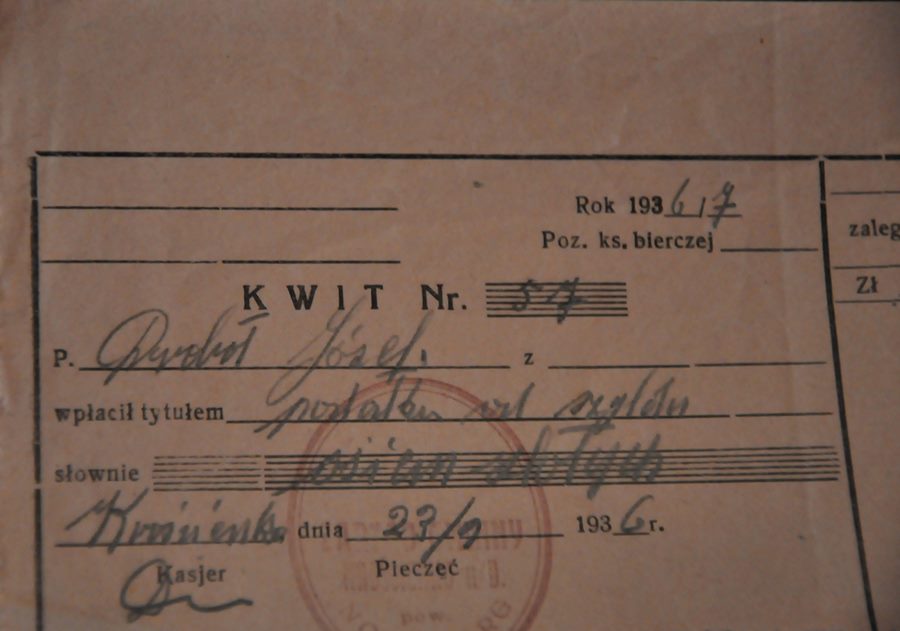 Rok 1936/7
Poz. ks. bierczej
zaleg
KWIT Nr. 57
Zł
P. Józef. z
wpłacił tytułem podatku od szyldu
słownie osiem złotych
Krościenko dnia 23/9 1936 r.
Kasjer Pieczęć
pow.